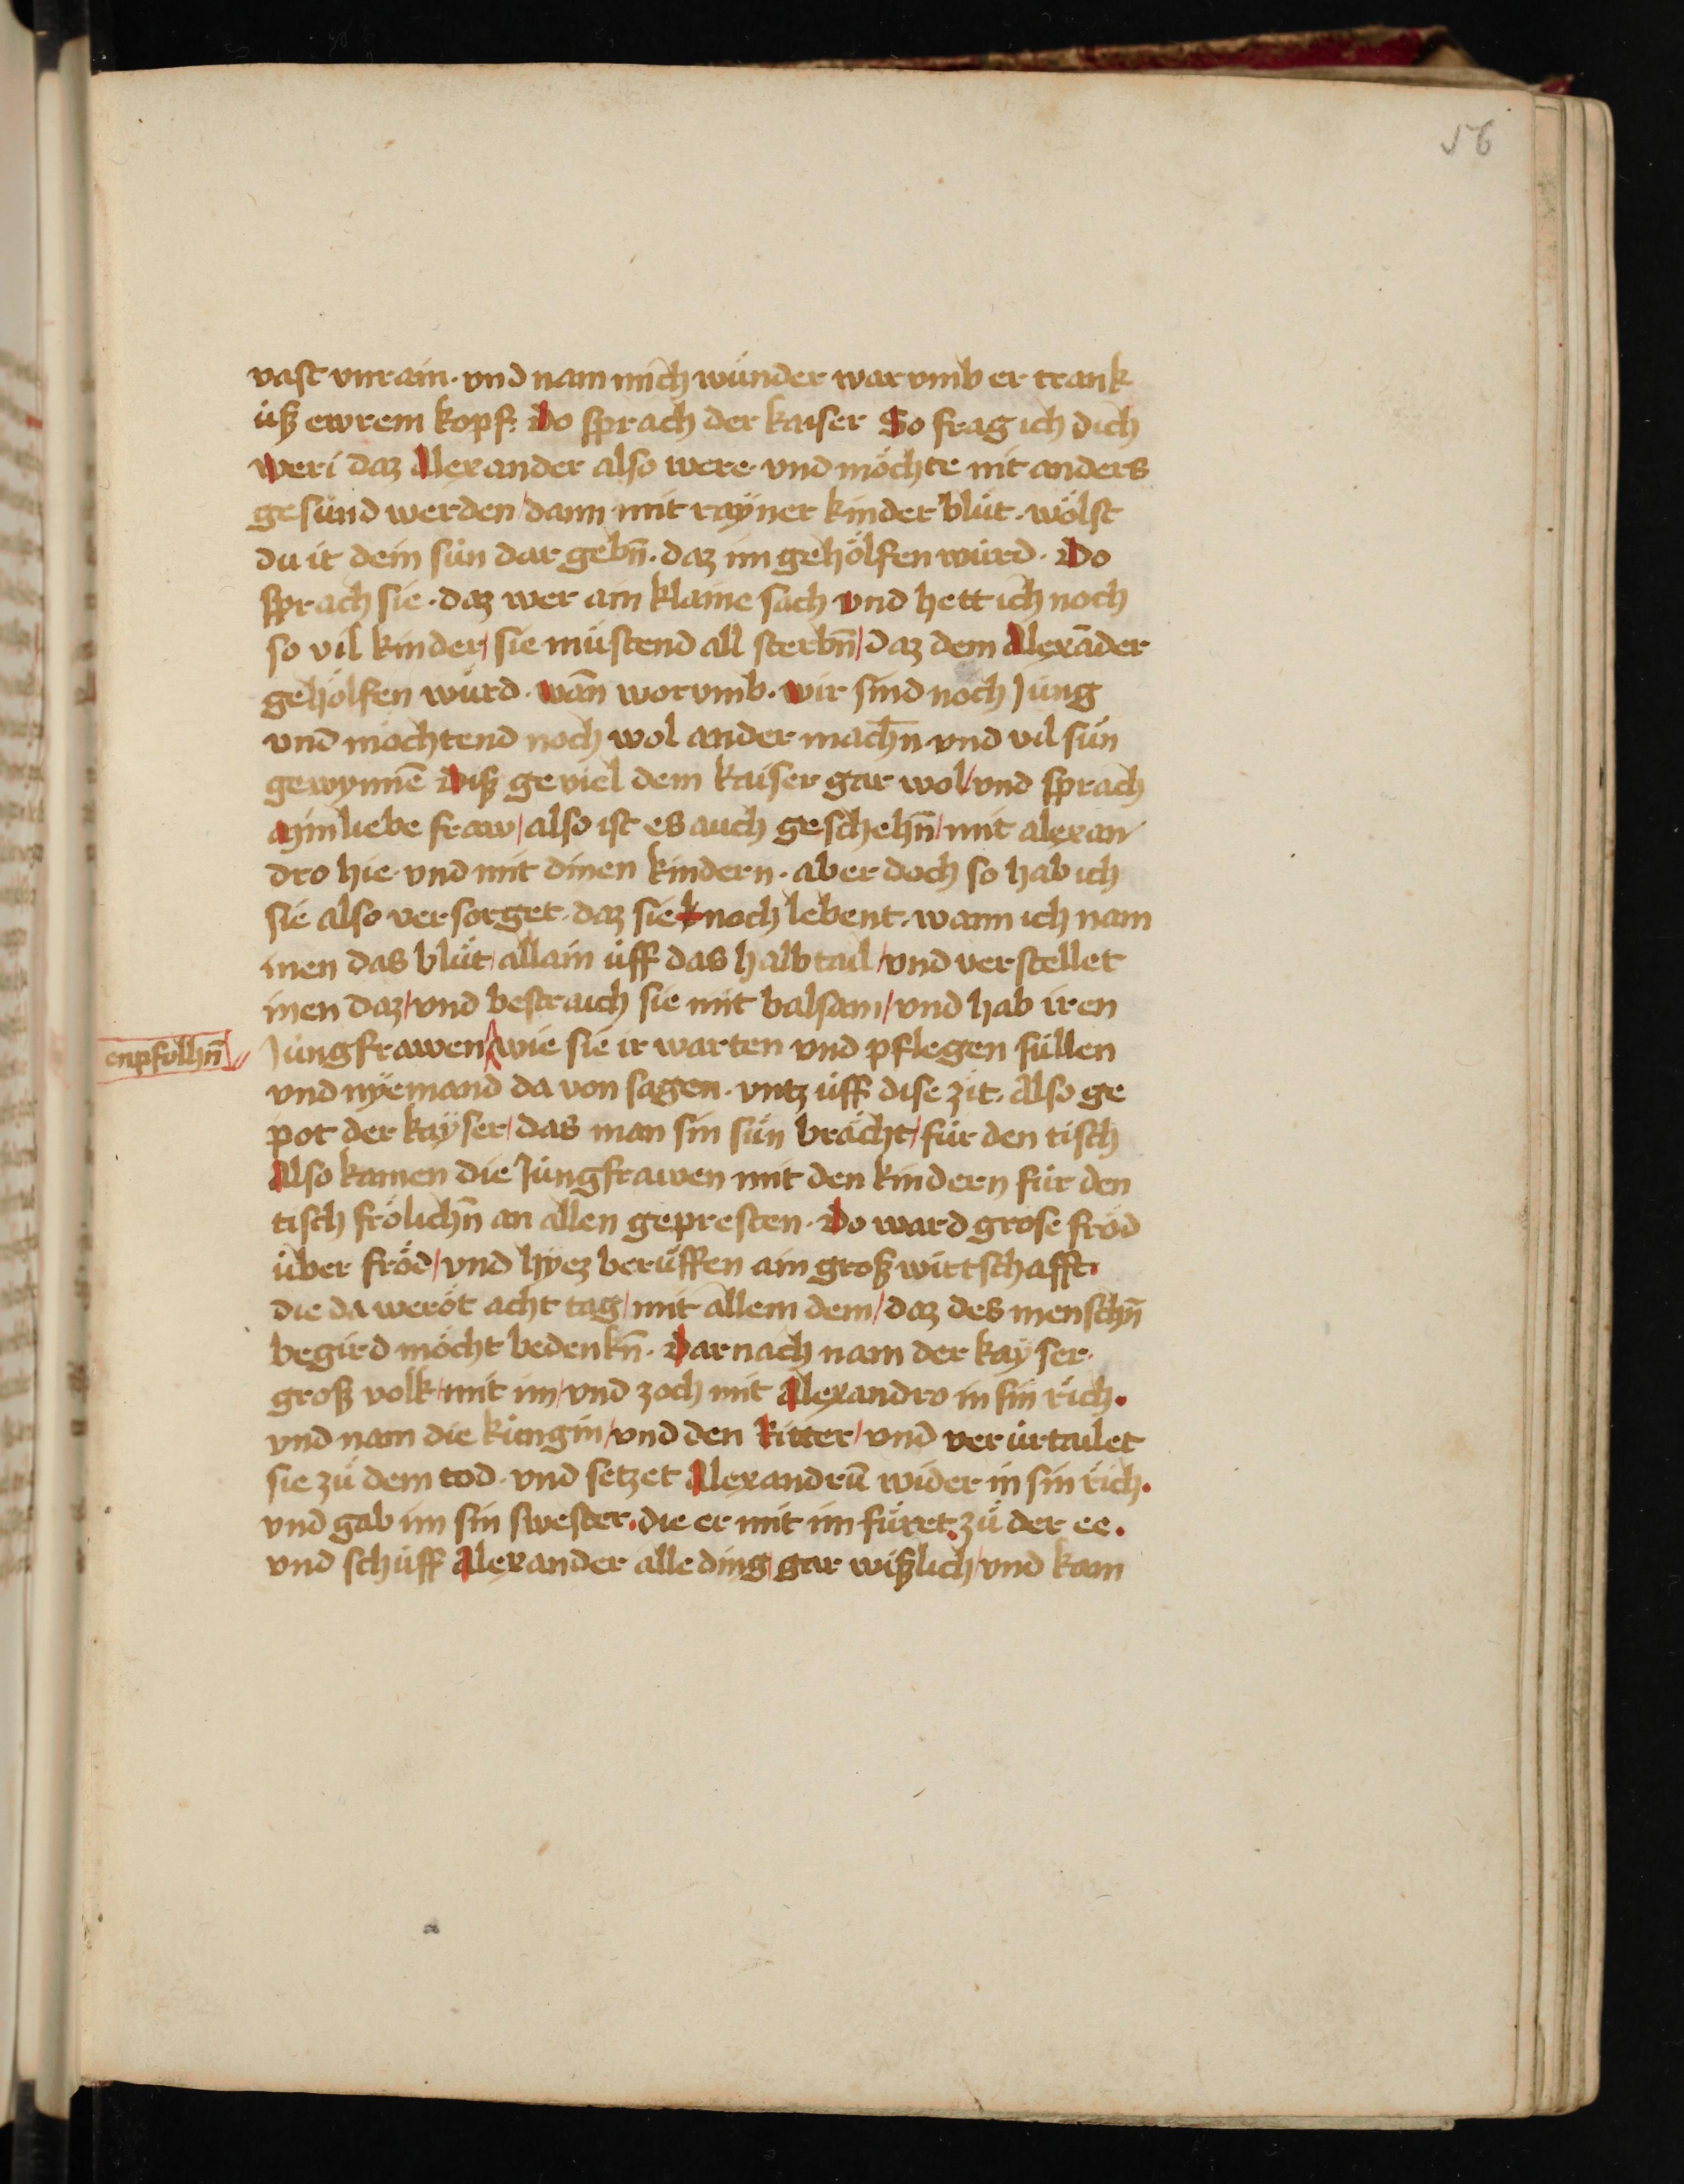 56
vast vnrain · vnd nam mich wunder war vmb er trank
uß ewrem kopf · Do sprach der kaiser So frag ich dich
weri daz Alexander also were · vnd möchte nit anders
gesund werden / dann mit rayner kinder blůt · wölst
du it dein sun dar gebn̄ · daz im gehölfen würd · Do
sprach sie · daz wer ain klaine sach vnd hett ich noch
so vil kinder / sie müstend all sterbn̄ / daz dem Alexāder
gehölfen würd · wān worvmb · wir sind noch Jung
vnd möchtend noch wol ander machn̄ vnd vil sün
gewynnē Diß geviel dem kaiser gar wol / vnd sprach
Min liebe fraw / also ist es auch geschehn̄ / mit alexan
dro hie · vnd mit dinen kindern · aber doch so hab ich
sie also versorget · daz sie noch lebent · wann ich nam
inen das blůt / allain uff das halb tail / vnd verstellet
inen daz / vnd bestraich sie mit balsam / vnd hab iren
enpfolhn̄
Jungfrawen wie sie ir warten vnd pflegen süllen
vnd nyemand da von sagen · vntz uff dise zit · Also ge
pot der kayser / das man sin sün brächt / für den tisch
Also kamen die Jungfrawen mit den kindern für den
tisch frölichn̄ an allen gepresten · Do ward grose fröd
über fröd / vnd hyez berůffen ain groß wirtschafft ·
die da weröt acht tag / mit allem dem / daz des menschn̄
begird möcht bedenkn̄ · Darnach nam der kayser ·
groß volk / mit im / vnd zoch mit Alexandro in sin rich ·
vnd nam die küngin / vnd den Ritter / vnd verurtailet
sie zů dem tod · vnd setzet Alexandrū wider in sin rich ·
vnd gab im sin swester · die er mit im fůret · zů der ee ·
vnd schůff Alexander alle ding / gar wißlich / vnd kam